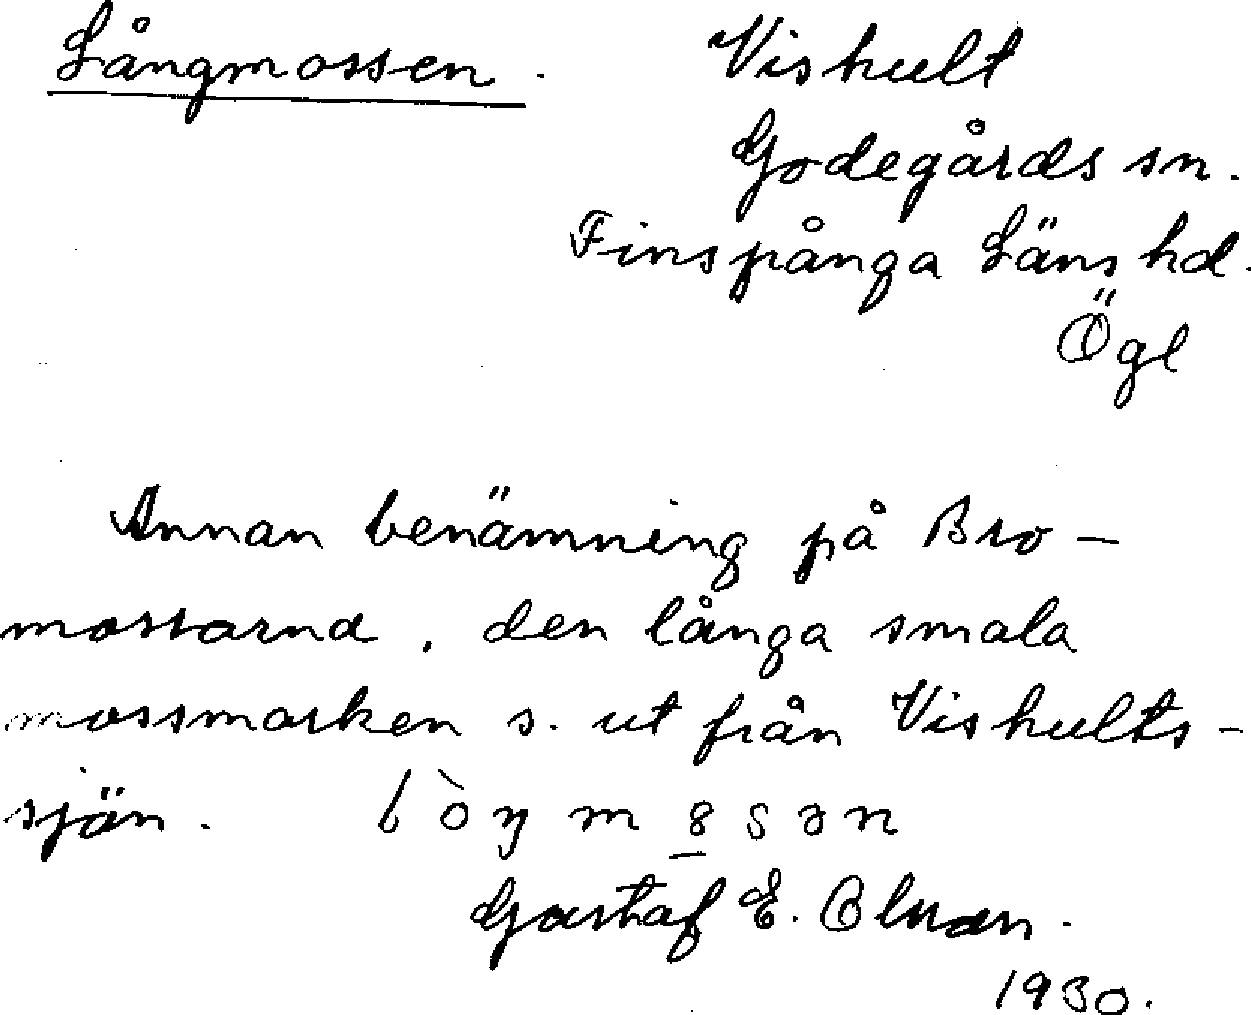 Långmossen. Vishult
Godegårds sn.
Finspånga Läns hd.
Ögl
Annan benämning på Bro-
mossarna, den långa smala
mossmarken s. ut från Vishults-
sjön.
Gustaf E. Olsson.
1930.